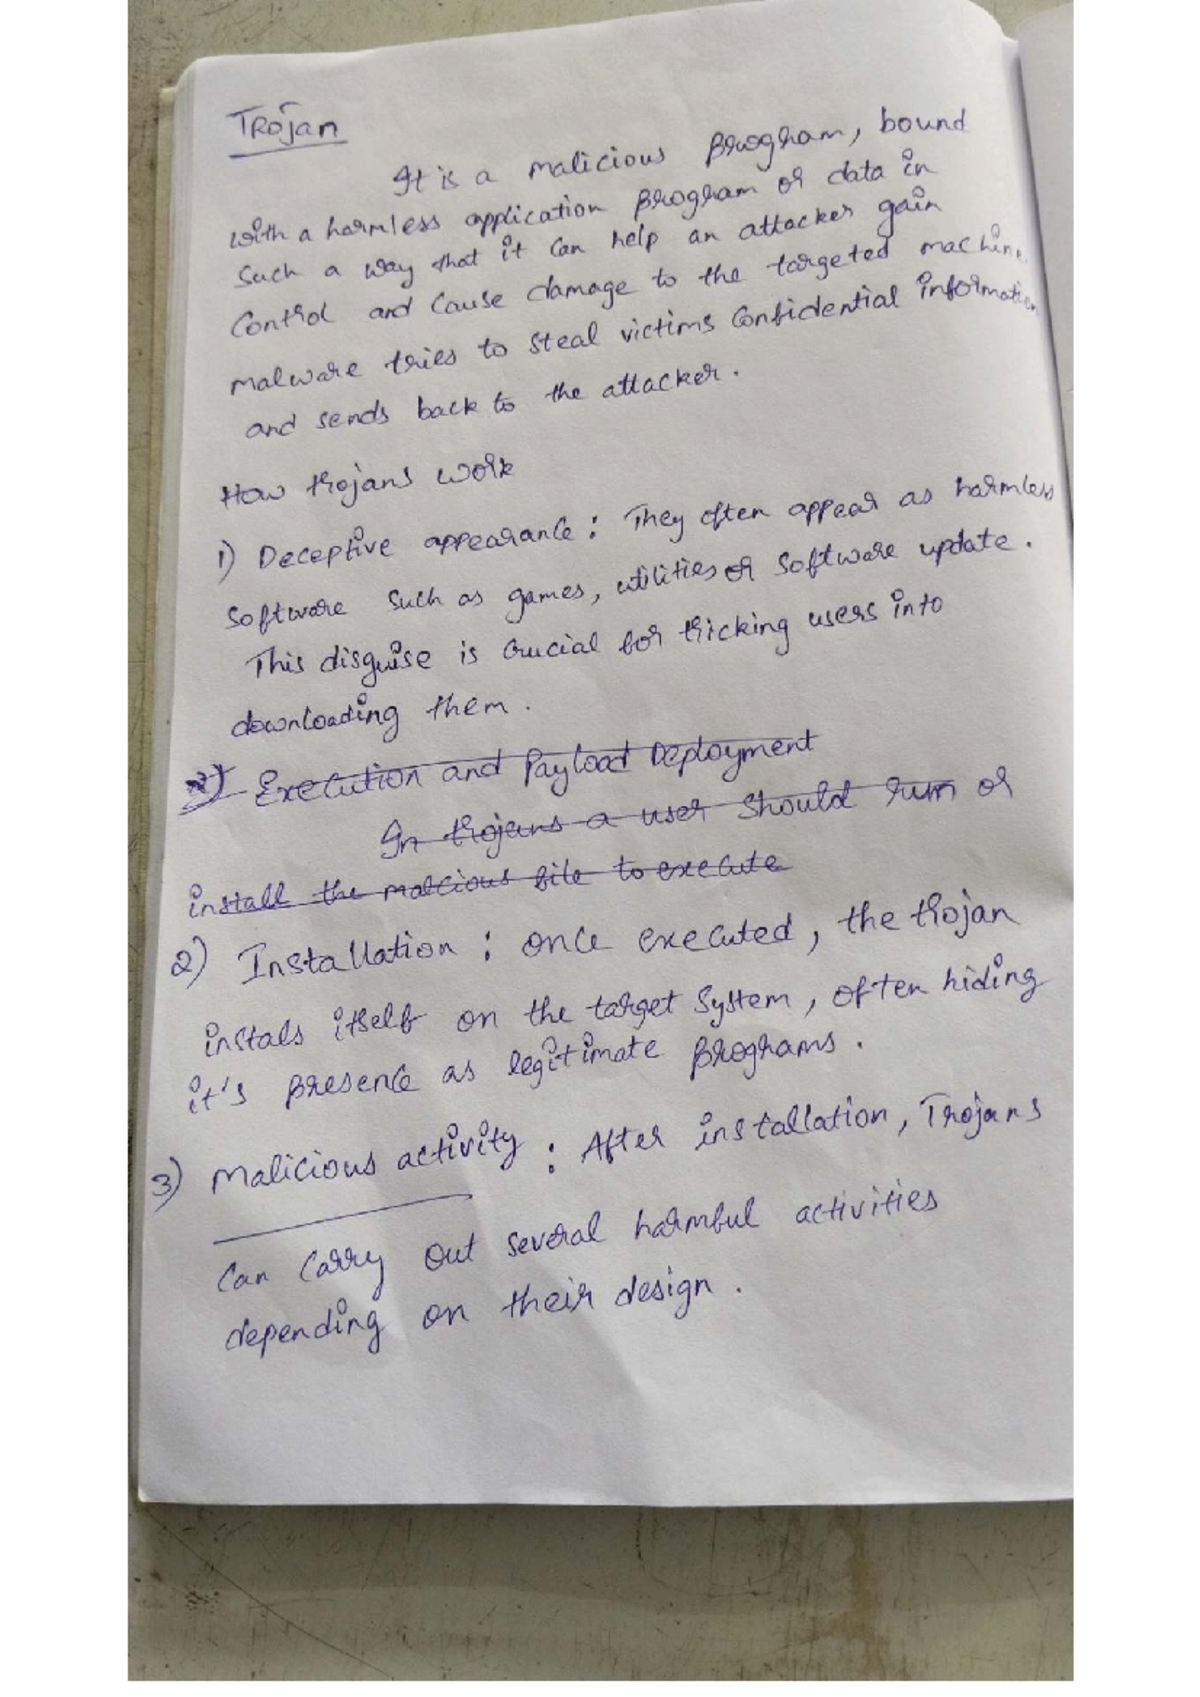 Trojan
It is a malicious program, bound
with a harmless application program or data in
such a way that it can help an attacker gain
control and cause damage to the targeted machine
malware tries to steal victims confidential information
and sends back to the attacker.
How trojans work
1) Deceptive appearance: They often appear as harmless
software such as games, utilities or software update.
This disguise is crucial for tricking users into
downloading them.
2) Execution and Payload Deployment
In trojans a user should run or
install the malcious file to execute
2) Installation: once executed, the trojan
instals itself on the target system, often hiding
it's presence as legitimate programs.
3) malicious activity: After installation, Trojans
can carry out several harmful activities
depending on their design.